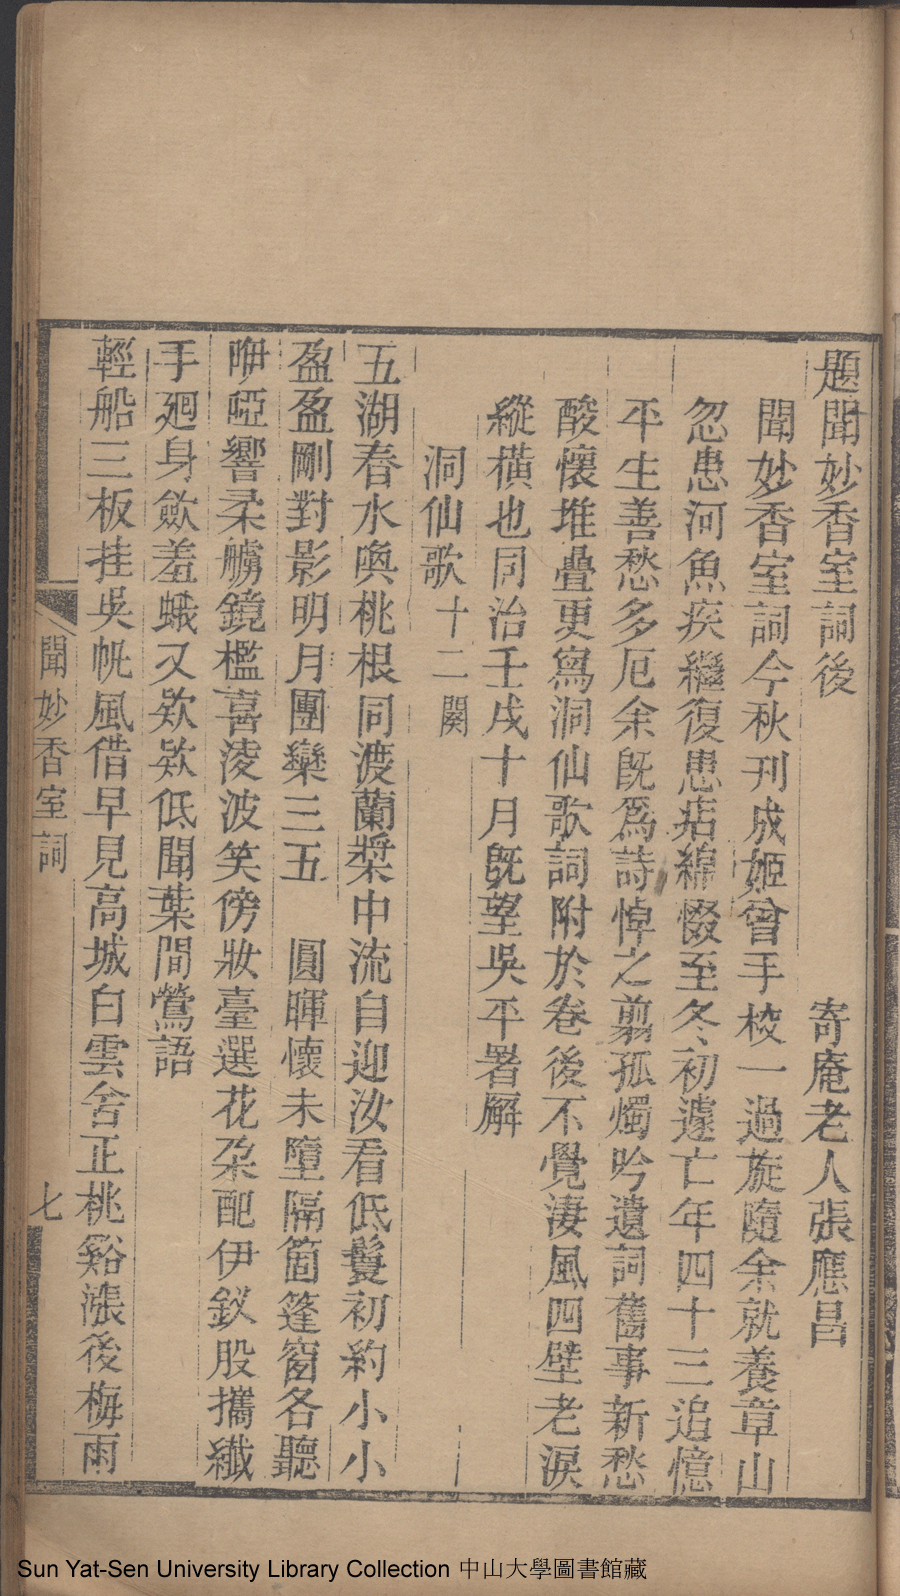 題聞妙香室詞後　寄庵老人張應昌
聞妙香室詞今秋刊成姬曾手校一過旋隨余就養章山
忽患河魚疾繼復患痁綿惙至冬初遽亡年四十三追憶
平生善愁多厄余旣爲詩悼之翦孤燭吟遺詞舊事新愁
酸懷堆疊更寫洞仙歌詞附於卷後不覺淒風四壁老淚
縱橫也同治壬戌十月旣望吳平署廨
洞仙歌十二闋
五湖春水喚桃根同渡蘭槳中流自迎汝看低鬟初約小小
盈盈剛對影明月團欒三五　圓暉懷未墮隔箇篷窗各聽
咿啞響柔艣鏡檻喜淩波笑傍妝臺選花朶配伊釵股攜纖
手廻身斂羞蛾又欵欵低聞葉間鶯語
輕船三板挂吳帆風借早見高城白雲舍正桃谿漲後梅雨
聞妙香室詞　七
Sun Yat-Sen University Library Collection 中山大學圖書館藏